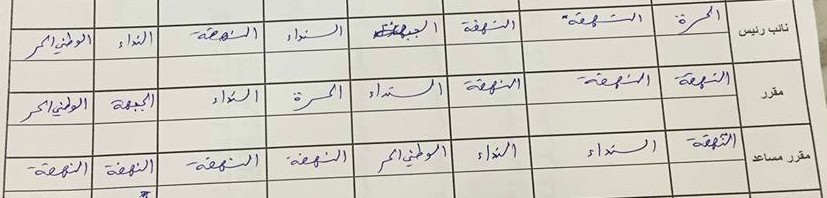 نائب رئيس الحرة النهضة النهضة الجبهة النداء النهضة النداء الوطني الحر
مقرر النهضة النهضة النهضة النداء الحرة النداء الجبهة الوطني الحر
مقرر مساعد النهضة النداء النداء الوطني الحر النهضة النهضة النهضة النهضة